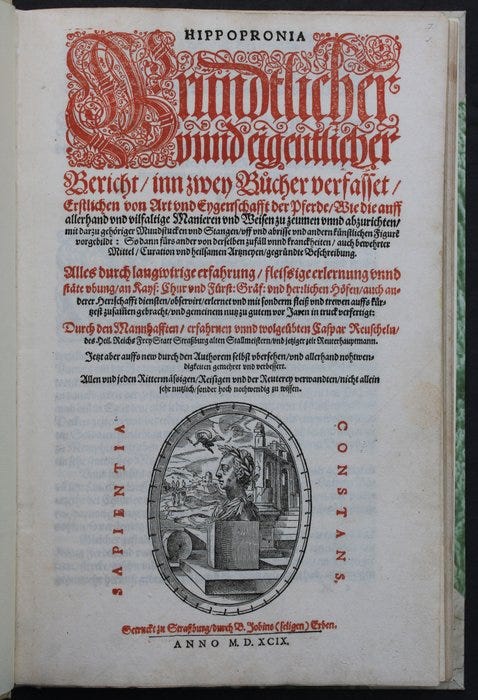 HIPPOPRONIA
Gründtlicher
vnnd eigentlicher
Bericht / inn zwey Bücher verfasset /
Erstlichen von Art vnd Eygenschafft der Pferde / Wie die auff
allerhand vnd vilfaltige Manieren vnd Weisen zu zeumen vnnd abzurichten /
mit darzu gehöriger Mundstucken vnd Stangen / vff vnd abrisse vnd andern künstlichen Figurē
vorgebildt : So dann fürs ander von derselben zufäll vnnd kranckheiten / auch bewehrter
Mittel / Curation vnd heilsamen Artzneyen / gegründte Beschreibung.
Alles durch langwirige erfahrung / fleissige erlernung vnnd
stäte vbung / an Kays: Chur vnd Fürst: Gräf: vnd herrlichen Höfen / auch an-
derer Herrschafft diensten / observirt / erlernet vnd mit sonderm fleiß vnd trewen auffs kür-
tzest zusamen gebracht / vnd gemeinem nutz zu gutem vor Jaren in truck verfertigt:
Durch den Mannhafften / erfahrnen vnnd wolgeübten Caspar Reuscheln /
des Heil. Reichs Frey Statt Straßburg alten Stallmeistern / vnd jetziger zeit Reuterhauptmann.
Jetzt aber auffs new durch den Authorem selbst vbersehen / vnd allerhand nohtwen-
digkeiten gemehret vnd verbessert.
Allen vnd jeden Rittermässigen / Reisigen vnd der Reuterey verwandten / nicht allein
sehr nutzlich / sonder hoch nothwendig zu wissen.
SAPIENTIA
CONSTANS.
Getruckt zu Straßburg / durch B. Jobins (seligen) Erben.
ANNO M. D. XCIX.